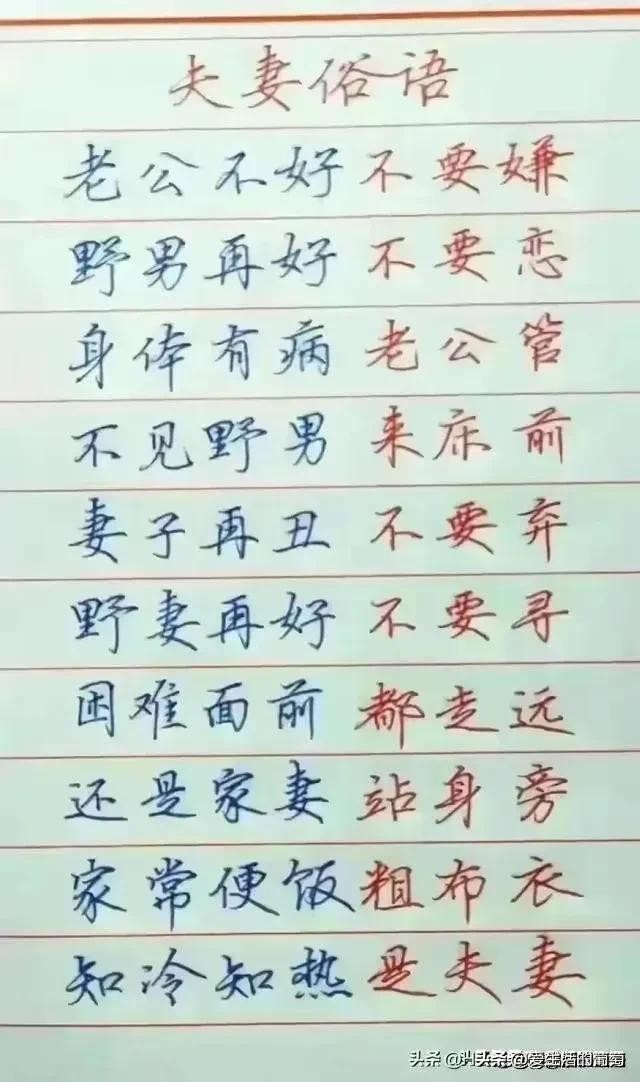 夫妻俗语
老公不好不要嫌
野男再好不要恋
身体有病老公管
不见野男来床前
妻子再丑不要弃
野妻再好不要寻
困难面前都走远
还是家妻站身旁
家常便饭粗布衣
知冷知热是夫妻
头条 @爱生活的葡萄